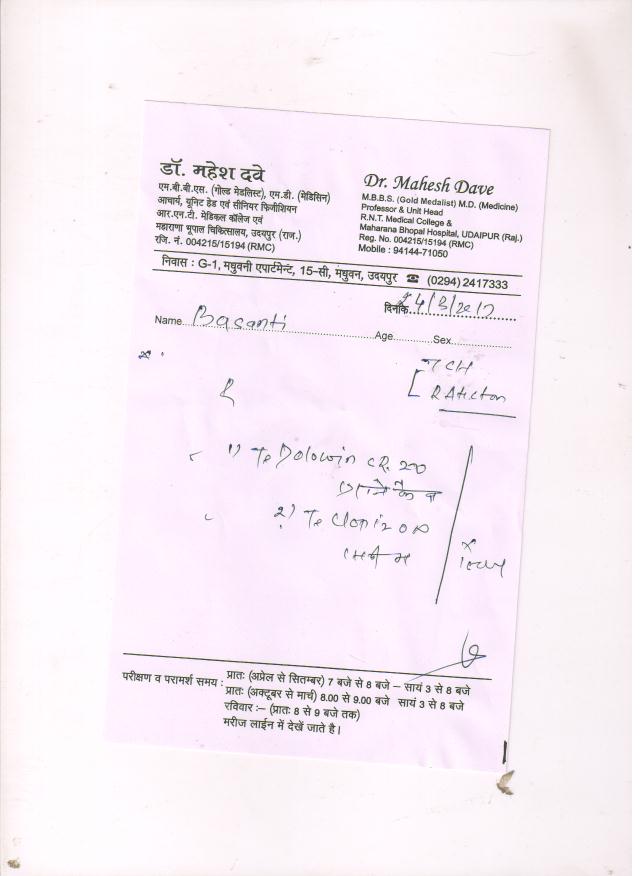 डॉ. महेश दवे
एम.बी.बी.एस. (गोल्ड मेडलिस्ट), एम.डी. (मेडिसिन)
आचार्य, यूनिट हेड एवं सीनियर फिजीशियन
आर.एन.टी. मेडिकल कॉलेज एवं
महाराणा भूपाल चिकित्सालय, उदयपुर (राज.)
रजि. नं. 004215/15194 (RMC)
Dr. Mahesh Dave
M.B.B.S. (Gold Medalist) M.D. (Medicine)
Professor & Unit Head
R.N.T. Medical College &
Maharana Bhopal Hospital, UDAIPUR (Raj.)
Reg. No. 004215/15194 (RMC)
Mobile : 94144-71050
निवास : G-1, मधुवनी एपार्टमेन्ट, 15-सी, मधुवन, उदयपुर ☎ (0294) 2417333
दिनांक
Name Basanti Age Sex
1) Dolowin CR 200
2)
परीक्षण व परामर्श समय : प्रातः (अप्रेल से सितम्बर) 7 बजे से 8 बजे – सायं 3 से 8 बजे
प्रातः (अक्टूबर से मार्च) 8.00 से 9.00 बजे सायं 3 से 8 बजे
रविवार :– (प्रातः 8 से 9 बजे तक)
मरीज लाईन में देखें जाते है।